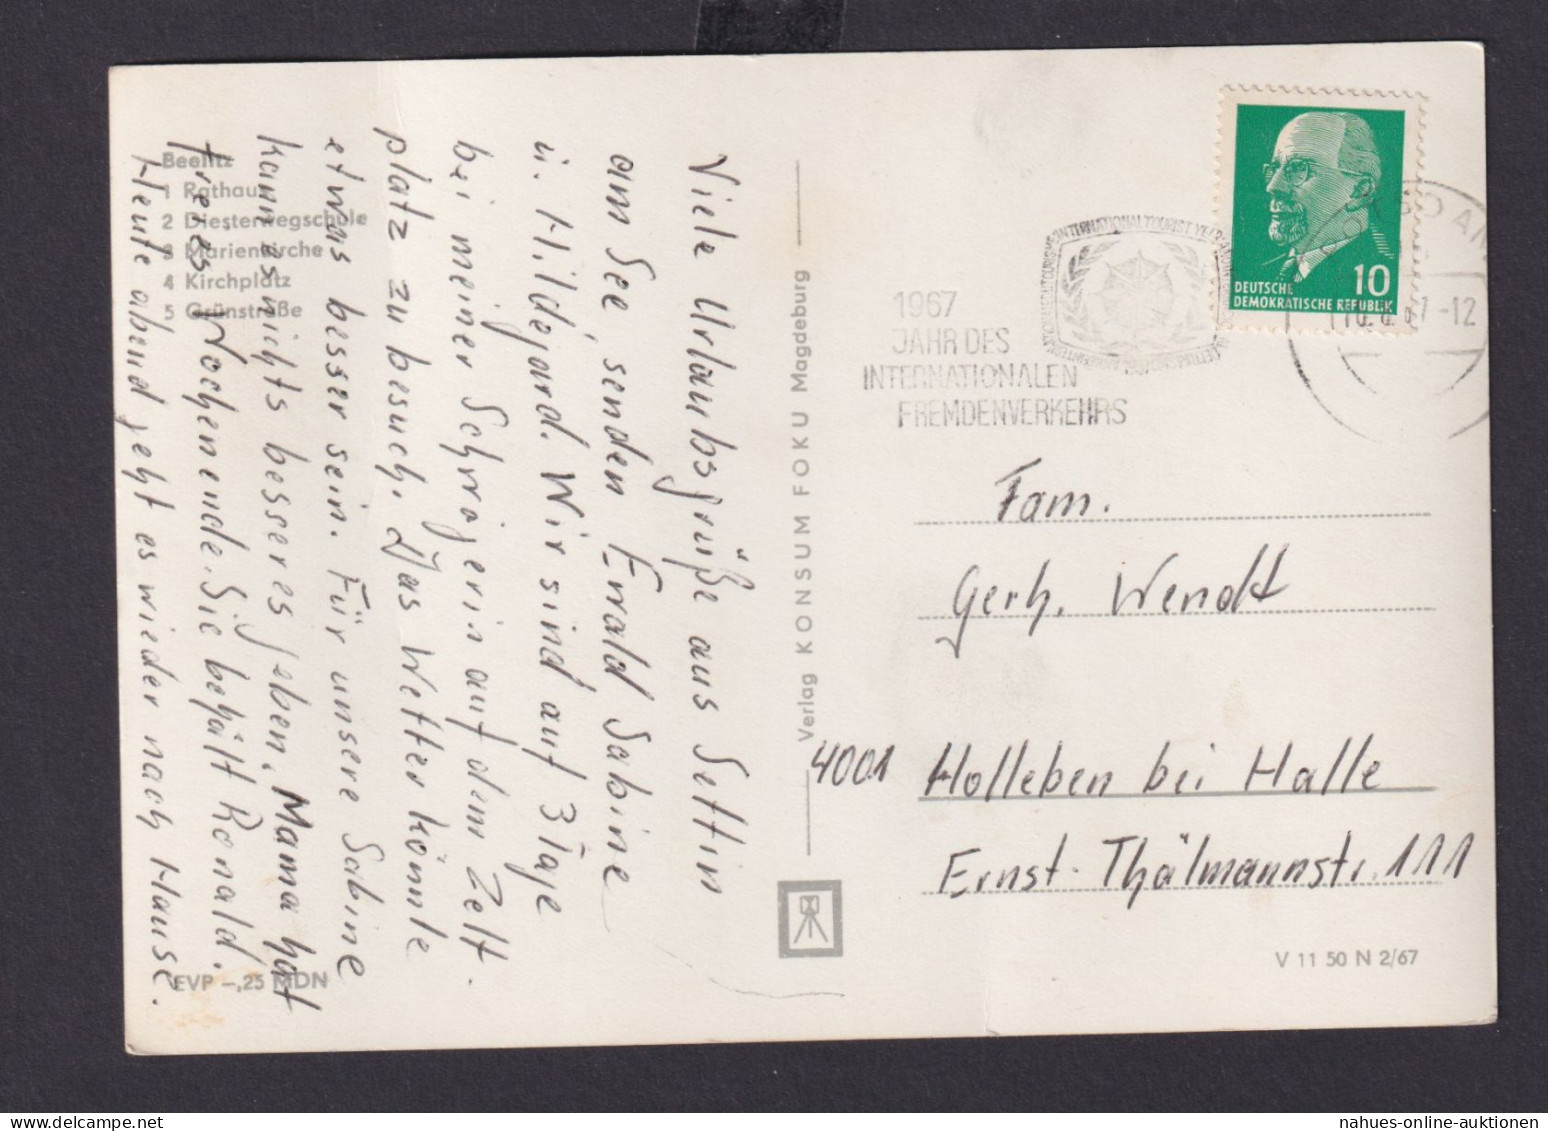 Beelitz
1 Rathaus
2 Diesterwegschule
3 Marienkirche
4 Kirchplatz
5 Grünstraße
Viele Urlaubsgrüße aus Settin
am See, senden Ewald Sabine
u. Hildegard. Wir sind auf 3 Tage
bei meiner Schwägerin auf dem Zelt-
platz zu besuch. Das Wetter könnte
etwas besser sein. Für unsere Sabine
kann es nichts besseres geben, Mama hat
freies Wochenende. Sie behält Ronald.
Heute abend geht es wieder nach Hause.
EVP -,25 MDN
Verlag KONSUM FOKU Magdeburg
1967
JAHR DES
INTERNATIONALEN
FREMDENVERKEHRS
INTERNATIONAL TOURIST YEAR
DEUTSCHE
DEMOKRATISCHE REPUBLIK
10
-12
Fam.
Gerh. Wendt
4001 Holleben bei Halle
Ernst-Thälmannstr. 111
V 11 50 N 2/67
nahues-online-auktionen